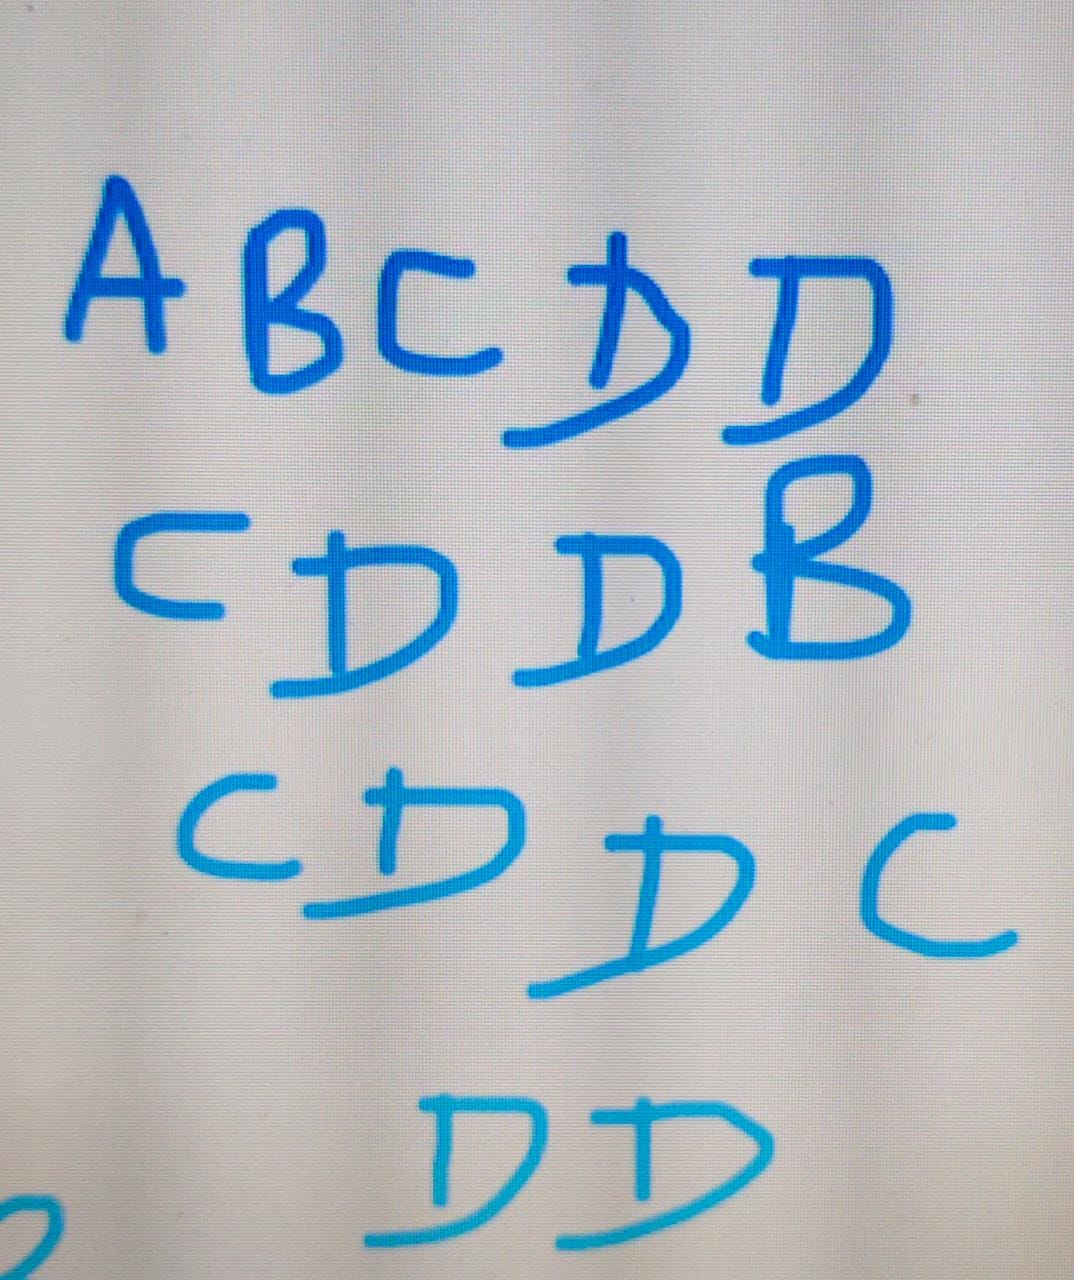 A B C D D
C D D B
C D D C
D D